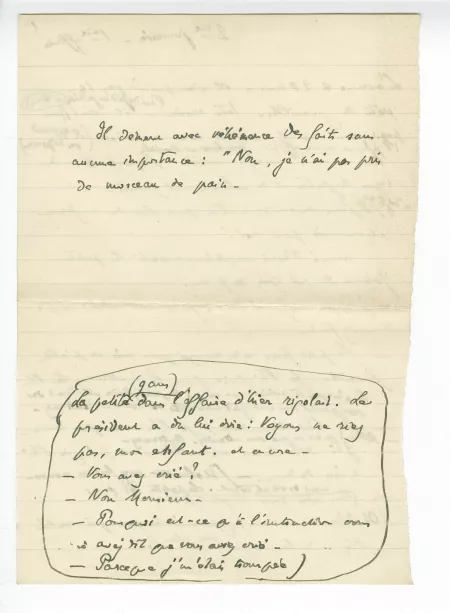 Il dément avec véhémence des faits sans
aucune importance : "Non, je n'ai pas pris
de morceau de pain –
(gaus)
(La petite dans l'affaire d'hier rigolait. Le
président a dû lui dire : Voyons ne riez
pas, mon enfant. et encore –
– Vous avez crié ?
– Non Monsieur –
– Pourquoi est-ce qu'à l'instruction vous
avez dit que vous aviez crié –
– Parce que j'm'étais trompée)